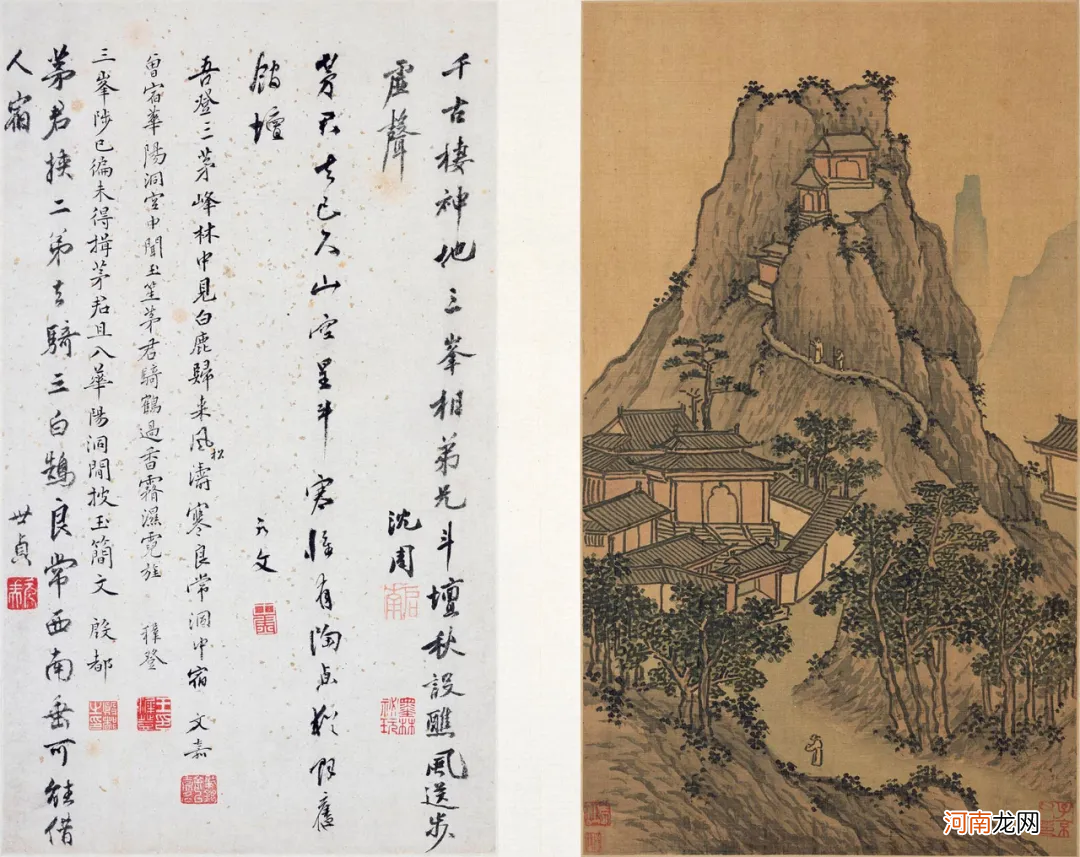 千古棲神地三峯相弟兄斗壇秋設醮風送步
虛聲
沈周
茅君去已久山空星斗寒惟有陶貞舊
館壇
吾登三茅峰林中見白鹿歸來風松濤寒良常洞中宿 文嘉
曾宿華陽洞宮中聞玉笙茅君騎鶴過香霧濕霓旌 穉登
三峯陟已徧未得揖茅君且入華陽洞閒披玉簡文 殷都
茅君挾二弟去騎三白鵠良常西南垂可能借
人宿
世貞
河南龙网